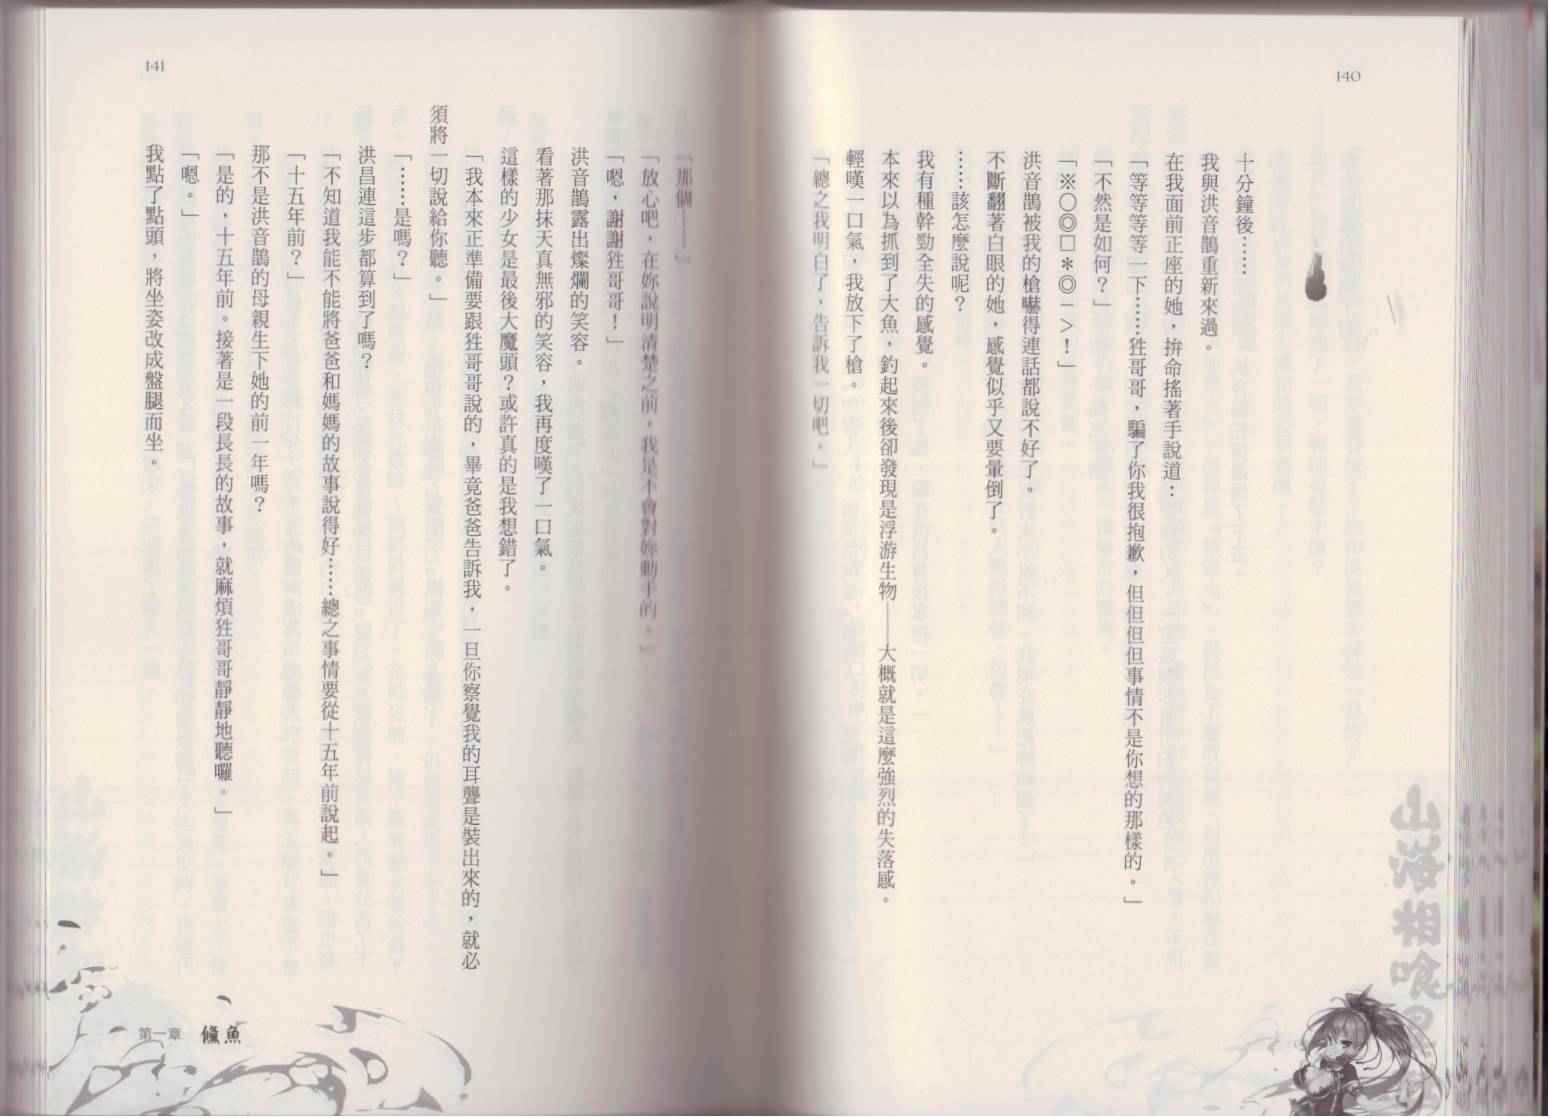 140
十分鐘後……
我與洪音鵲重新來過。
在我面前正座的她，拚命搖著手說道：
「等等等等一下……狌哥哥，騙了你我很抱歉，但但但但事情不是你想的那樣的。」
「不然是如何？」
「※〇◎□＊◎－＞！」
洪音鵲被我的槍嚇得連話都說不好了。
不斷翻著白眼的她，感覺似乎又要暈倒了。
……該怎麼說呢？
我有種幹勁全失的感覺。
本來以為抓到了大魚，釣起來後卻發現是浮游生物——大概就是這麼強烈的失落感。
輕嘆一口氣，我放下了槍。
「總之我明白了，告訴我一切吧。」
山海相喰
141
「那個——」
「放心吧，在妳說明清楚之前，我是不會對妳動手的。」
「嗯，謝謝狌哥哥！」
洪音鵲露出燦爛的笑容。
看著那抹天真無邪的笑容，我再度嘆了一口氣。
這樣的少女是最後大魔頭？或許真的是我想錯了。
「我本來正準備要跟狌哥哥說的，畢竟爸爸告訴我，一旦你察覺我的耳聾是裝出來的，就必
須將一切說給你聽。」
「……是嗎？」
洪昌連這步都算到了嗎？
「不知道我能不能將爸爸和媽媽的故事說得好……總之事情要從十五年前說起。」
「十五年前？」
那不是洪音鵲的母親生下她的前一年嗎？
「是的，十五年前。接著是一段長長的故事，就麻煩狌哥哥靜靜地聽囉。」
「嗯。」
我點了點頭，將坐姿改成盤腿而坐。
第一章 儵魚